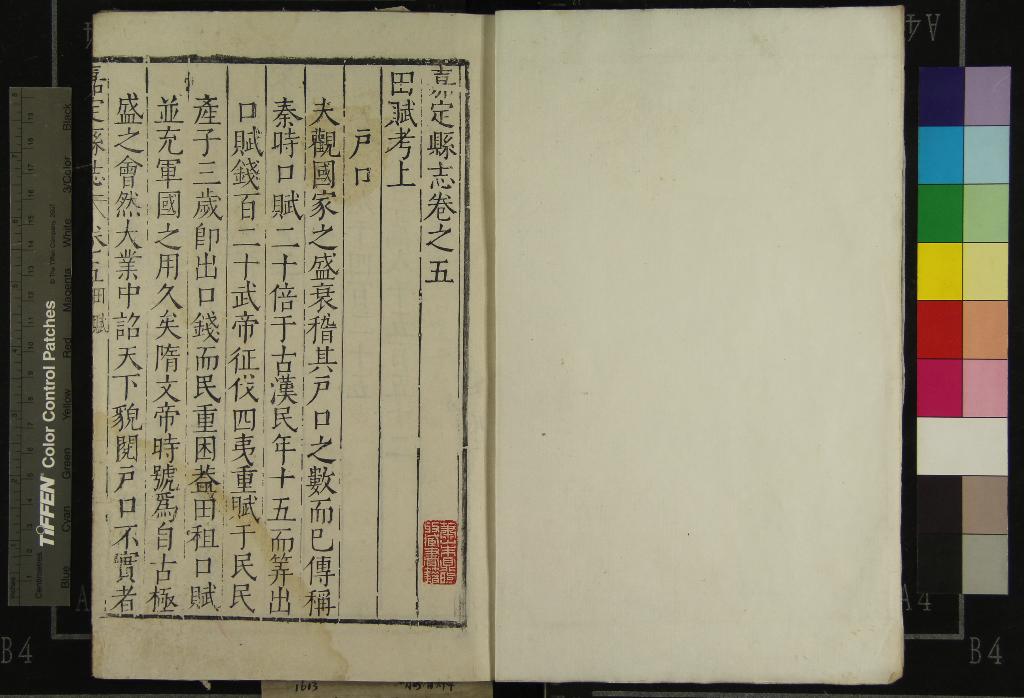 嘉定縣志卷之五
田賦考上
戶口
夫觀國家之盛衰稽其戶口之數而已傳稱
秦時口賦二十倍于古漢民年十五而筭出
口賦錢百二十武帝征伐四夷重賦于民民
產子三歲卽出口錢而民重困葢田租口賦
並充軍國之用久矣隋文帝時號爲自古極
盛之會然大業中詔天下貌閱戶口不實者
嘉定縣志 卷之五 田賦
TIFFEN Color Control Patches
© The Tiffen Company, 2007
Blue
Cyan
Green
Yellow
Red
Magenta
White
3/Color
Black
Inches
Centimetres
B4
B4
A4
A4
1613